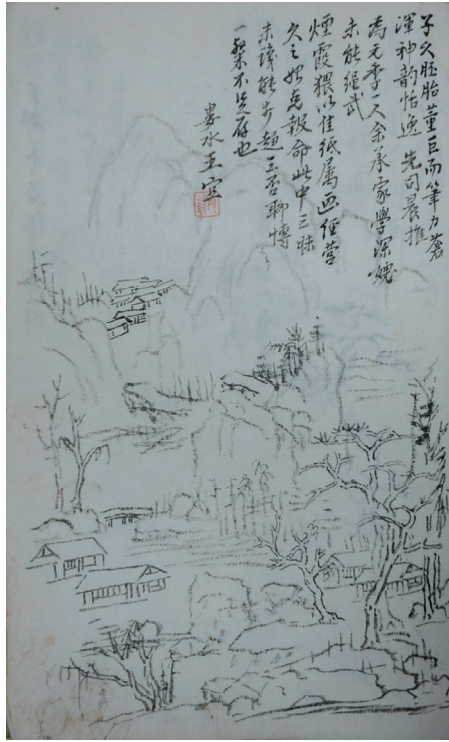 子久胚胎董巨而筆力蒼
渾神韵怡逸 先司農推
為元季一人余承家學深媿
未能繩武
煙霞猥以佳紙属画經營
久之始克報命此中三昧
未識能步趨一二否聊博
一粲不足存也
婁水王宸